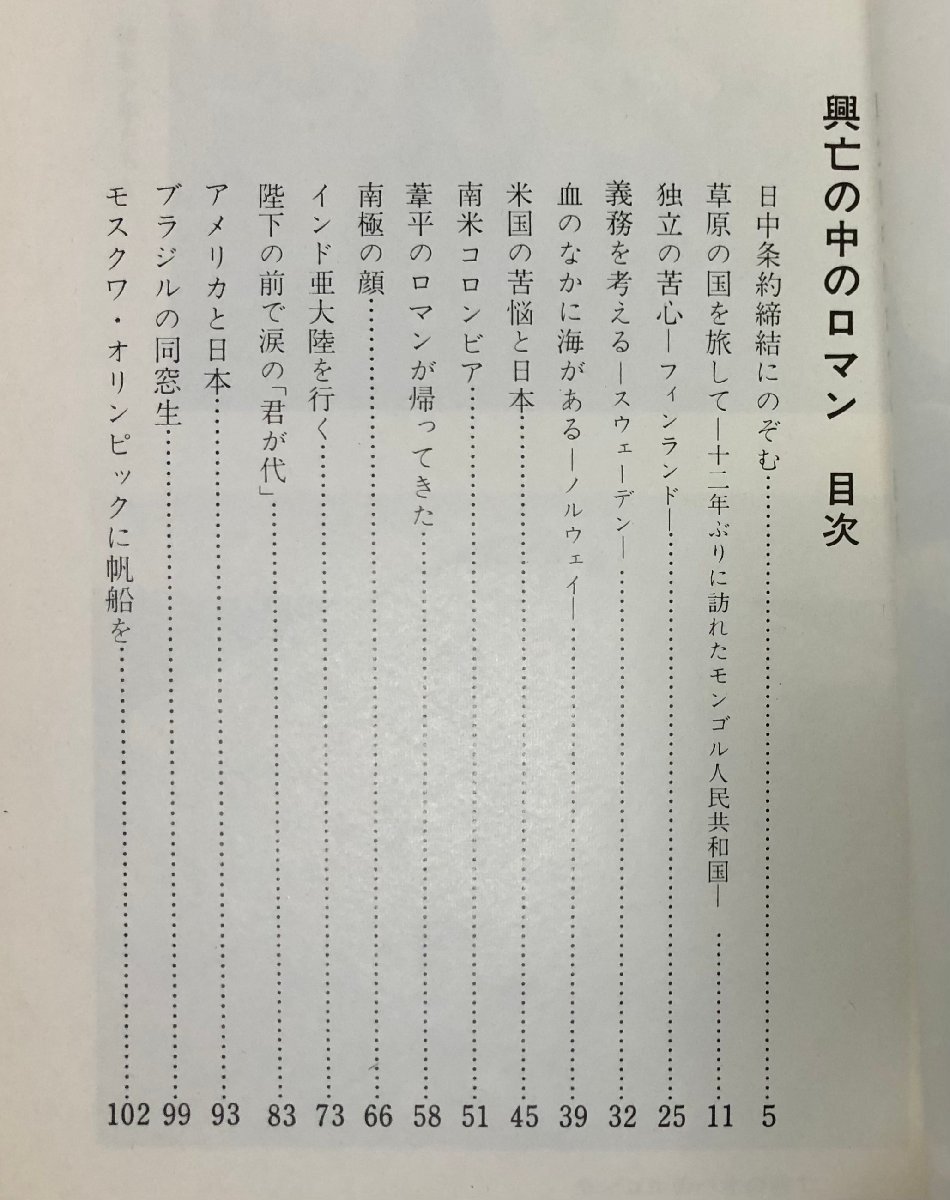 興亡の中のロマン　目次
日中条約締結にのぞむ……………………5
草原の国を旅して―十二年ぶりに訪れたモンゴル人民共和国―……11
独立の苦心―フィンランド―……………………25
義務を考える―スウェーデン―……………………32
血のなかに海がある―ノルウェイ―……………………39
米国の苦悩と日本……………………45
南米コロンビア……………………51
葦平のロマンが帰ってきた……………………58
南極の顔……………………66
インド亜大陸を行く……………………73
陛下の前で涙の「君が代」……………………83
アメリカと日本……………………93
ブラジルの同窓生……………………99
モスクワ・オリンピックに帆船を……………………102